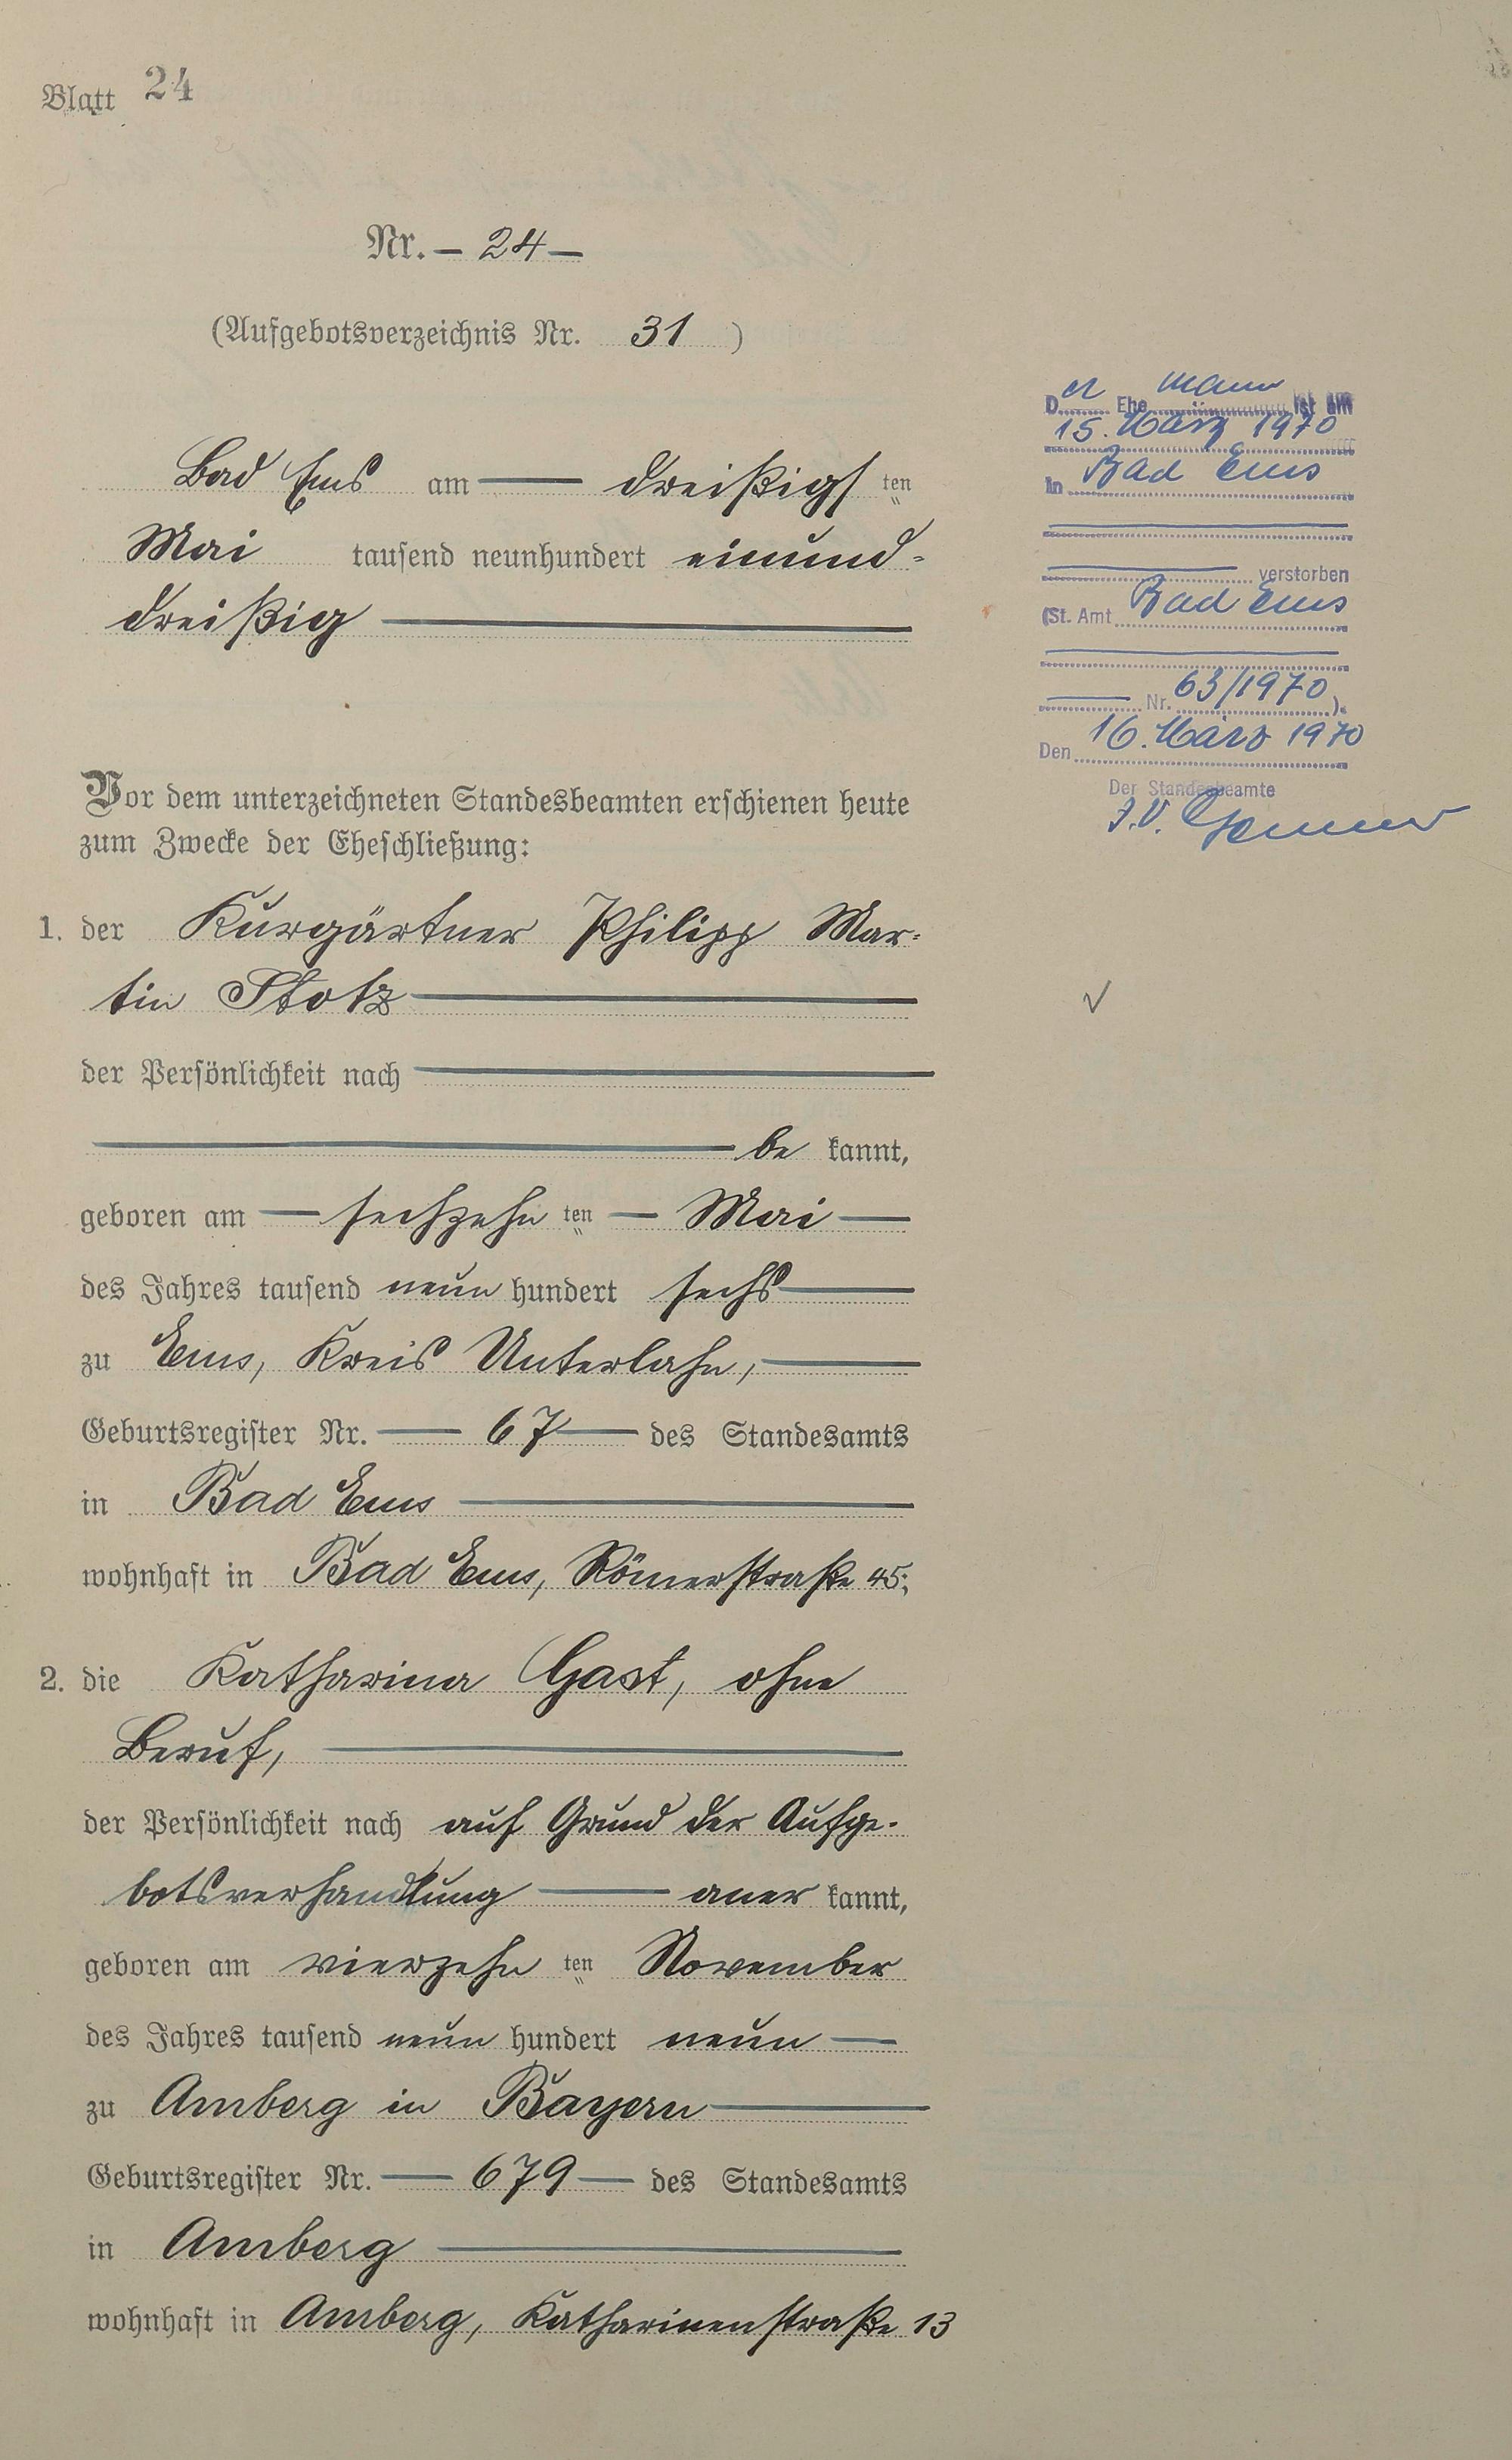 Blatt 24
Nr. — 24 —
(Aufgebotsverzeichnis Nr. 31 )
Bad Ems am — dreißigsten
Mai tausend neunhundert einund-
dreißig —
Vor dem unterzeichneten Standesbeamten erschienen heute
zum Zwecke der Eheschließung:
1. der Kurgärtner Philipp Mar-
tin Stotz —
der Persönlichkeit nach —
— be kannt,
geboren am — sechzehn ten — Mai —
des Jahres tausend neun hundert sechs —
zu Ems, Kreis Unterlahn, —
Geburtsregister Nr. — 67 — des Standesamts
in Bad Ems —
wohnhaft in Bad Ems, Römerstraße 45;
2. die Katharina Gast, ohne
Beruf, —
der Persönlichkeit nach auf Grund der Aufge-
botsverhandlung — aner kannt,
geboren am vierzehn ten November
des Jahres tausend neun hundert neun —
zu Amberg in Bayern —
Geburtsregister Nr. — 679 — des Standesamts
in Amberg —
wohnhaft in Amberg, Katharinenstraße 13
Der Ehemann ist am
15. März 1970
in Bad Ems
— verstorben
(St. Amt Bad Ems
— Nr. 63/1970 ).
Den 16. März 1970
Der Standesbeamte
J.V.